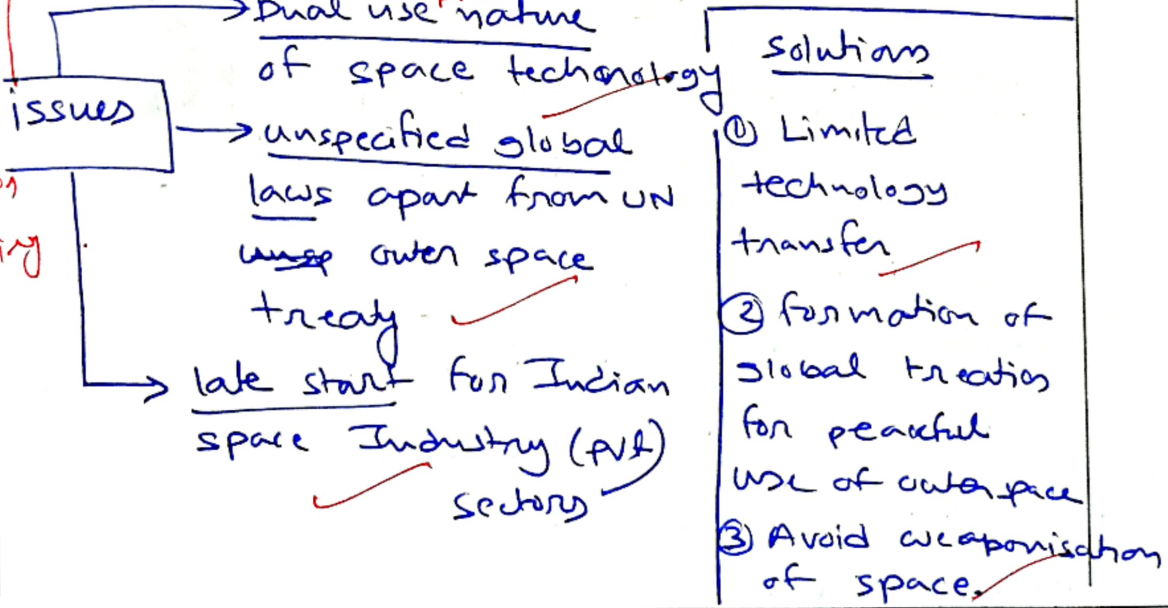 Dual use nature
of space techonology
issues
unspecified global
laws apart from UN
outer space
treaty
late start for Indian
space Industry (pvt)
sectors
Solutions
① Limited
technology
transfer
② formation of
global treaties
for peaceful
use of outerspace
③ Avoid weaponisation
of space.